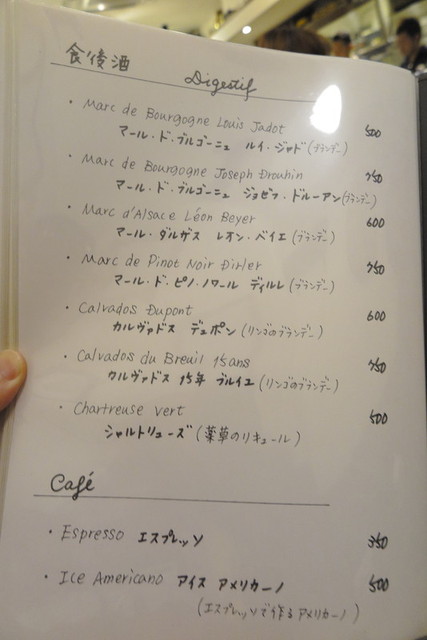 食後酒 Digestif
・ Marc de Bourgogne Louis Jadot 500
マール・ド・ブルゴーニュ ルイ・ジャド(ブランデー)
・ Marc de Bourgogne Joseph Drouhin 750
マール・ド・ブルゴーニュ ジョゼフ・ドルーアン(ブランデー)
・ Marc d'Alsace Léon Beyer 600
マール・ダルザス レオン・ベイエ(ブランデー)
・ Marc de Pinot Noir Dirler 750
マール・ド・ピノ・ノワール ディルレ(ブランデー)
・ Calvados Dupont 600
カルヴァドス デュポン(リンゴのブランデー)
・ Calvados du Breuil 15ans 750
カルヴァドス 15年 ブルイエ(リンゴのブランデー)
・ Chartreuse vert 500
シャルトリューズ(薬草のリキュール)
Café
・ Espresso エスプレッソ 350
・ Ice Americano アイス アメリカーノ 500
(エスプレッソで作るアメリカーノ)